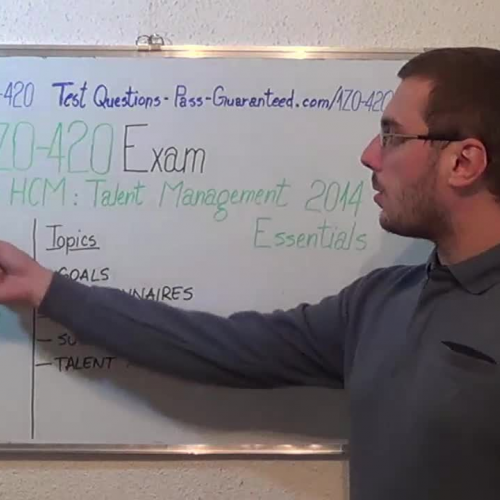 -420 Test Questions - Pass-Guaranteed.com/1Z0-420
Z0-420 Exam
HCM: Talent Management 2014
Essentials
Topics
GOALS
NAIRES
- SU
- TALENT